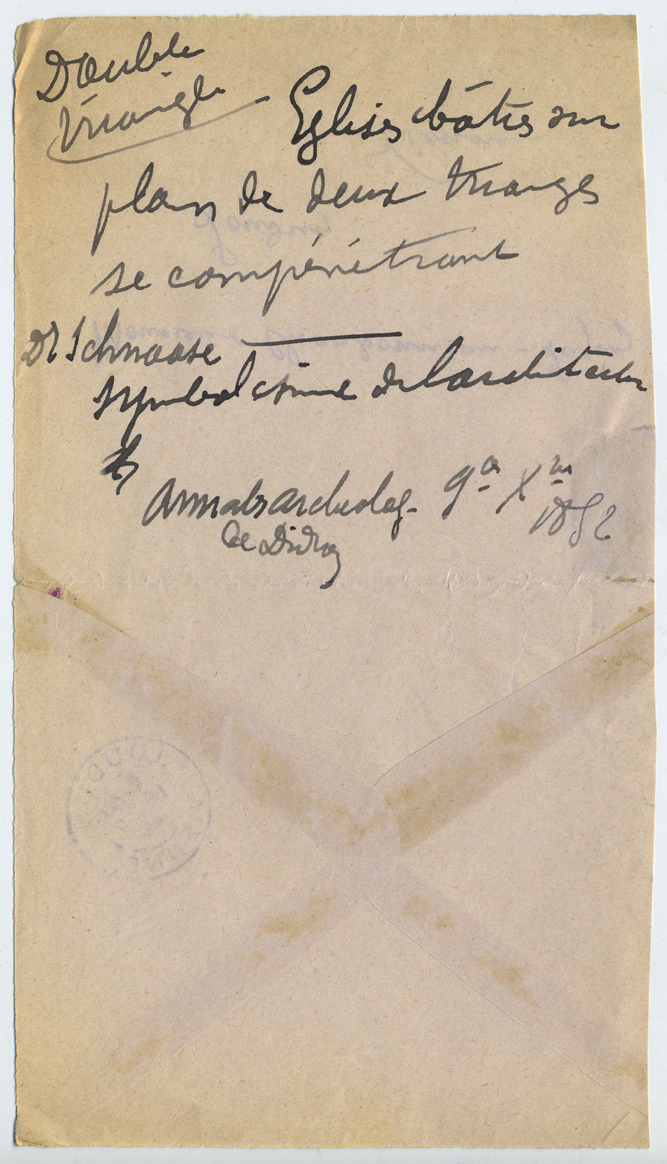 Double
triangle
Eglises bâties sur
plan de deux triangles
se compénétrant
Dr Schnaase
symbolisme de l'architecture
Annales archeolog. 9bre Xbre
de Didron 1852